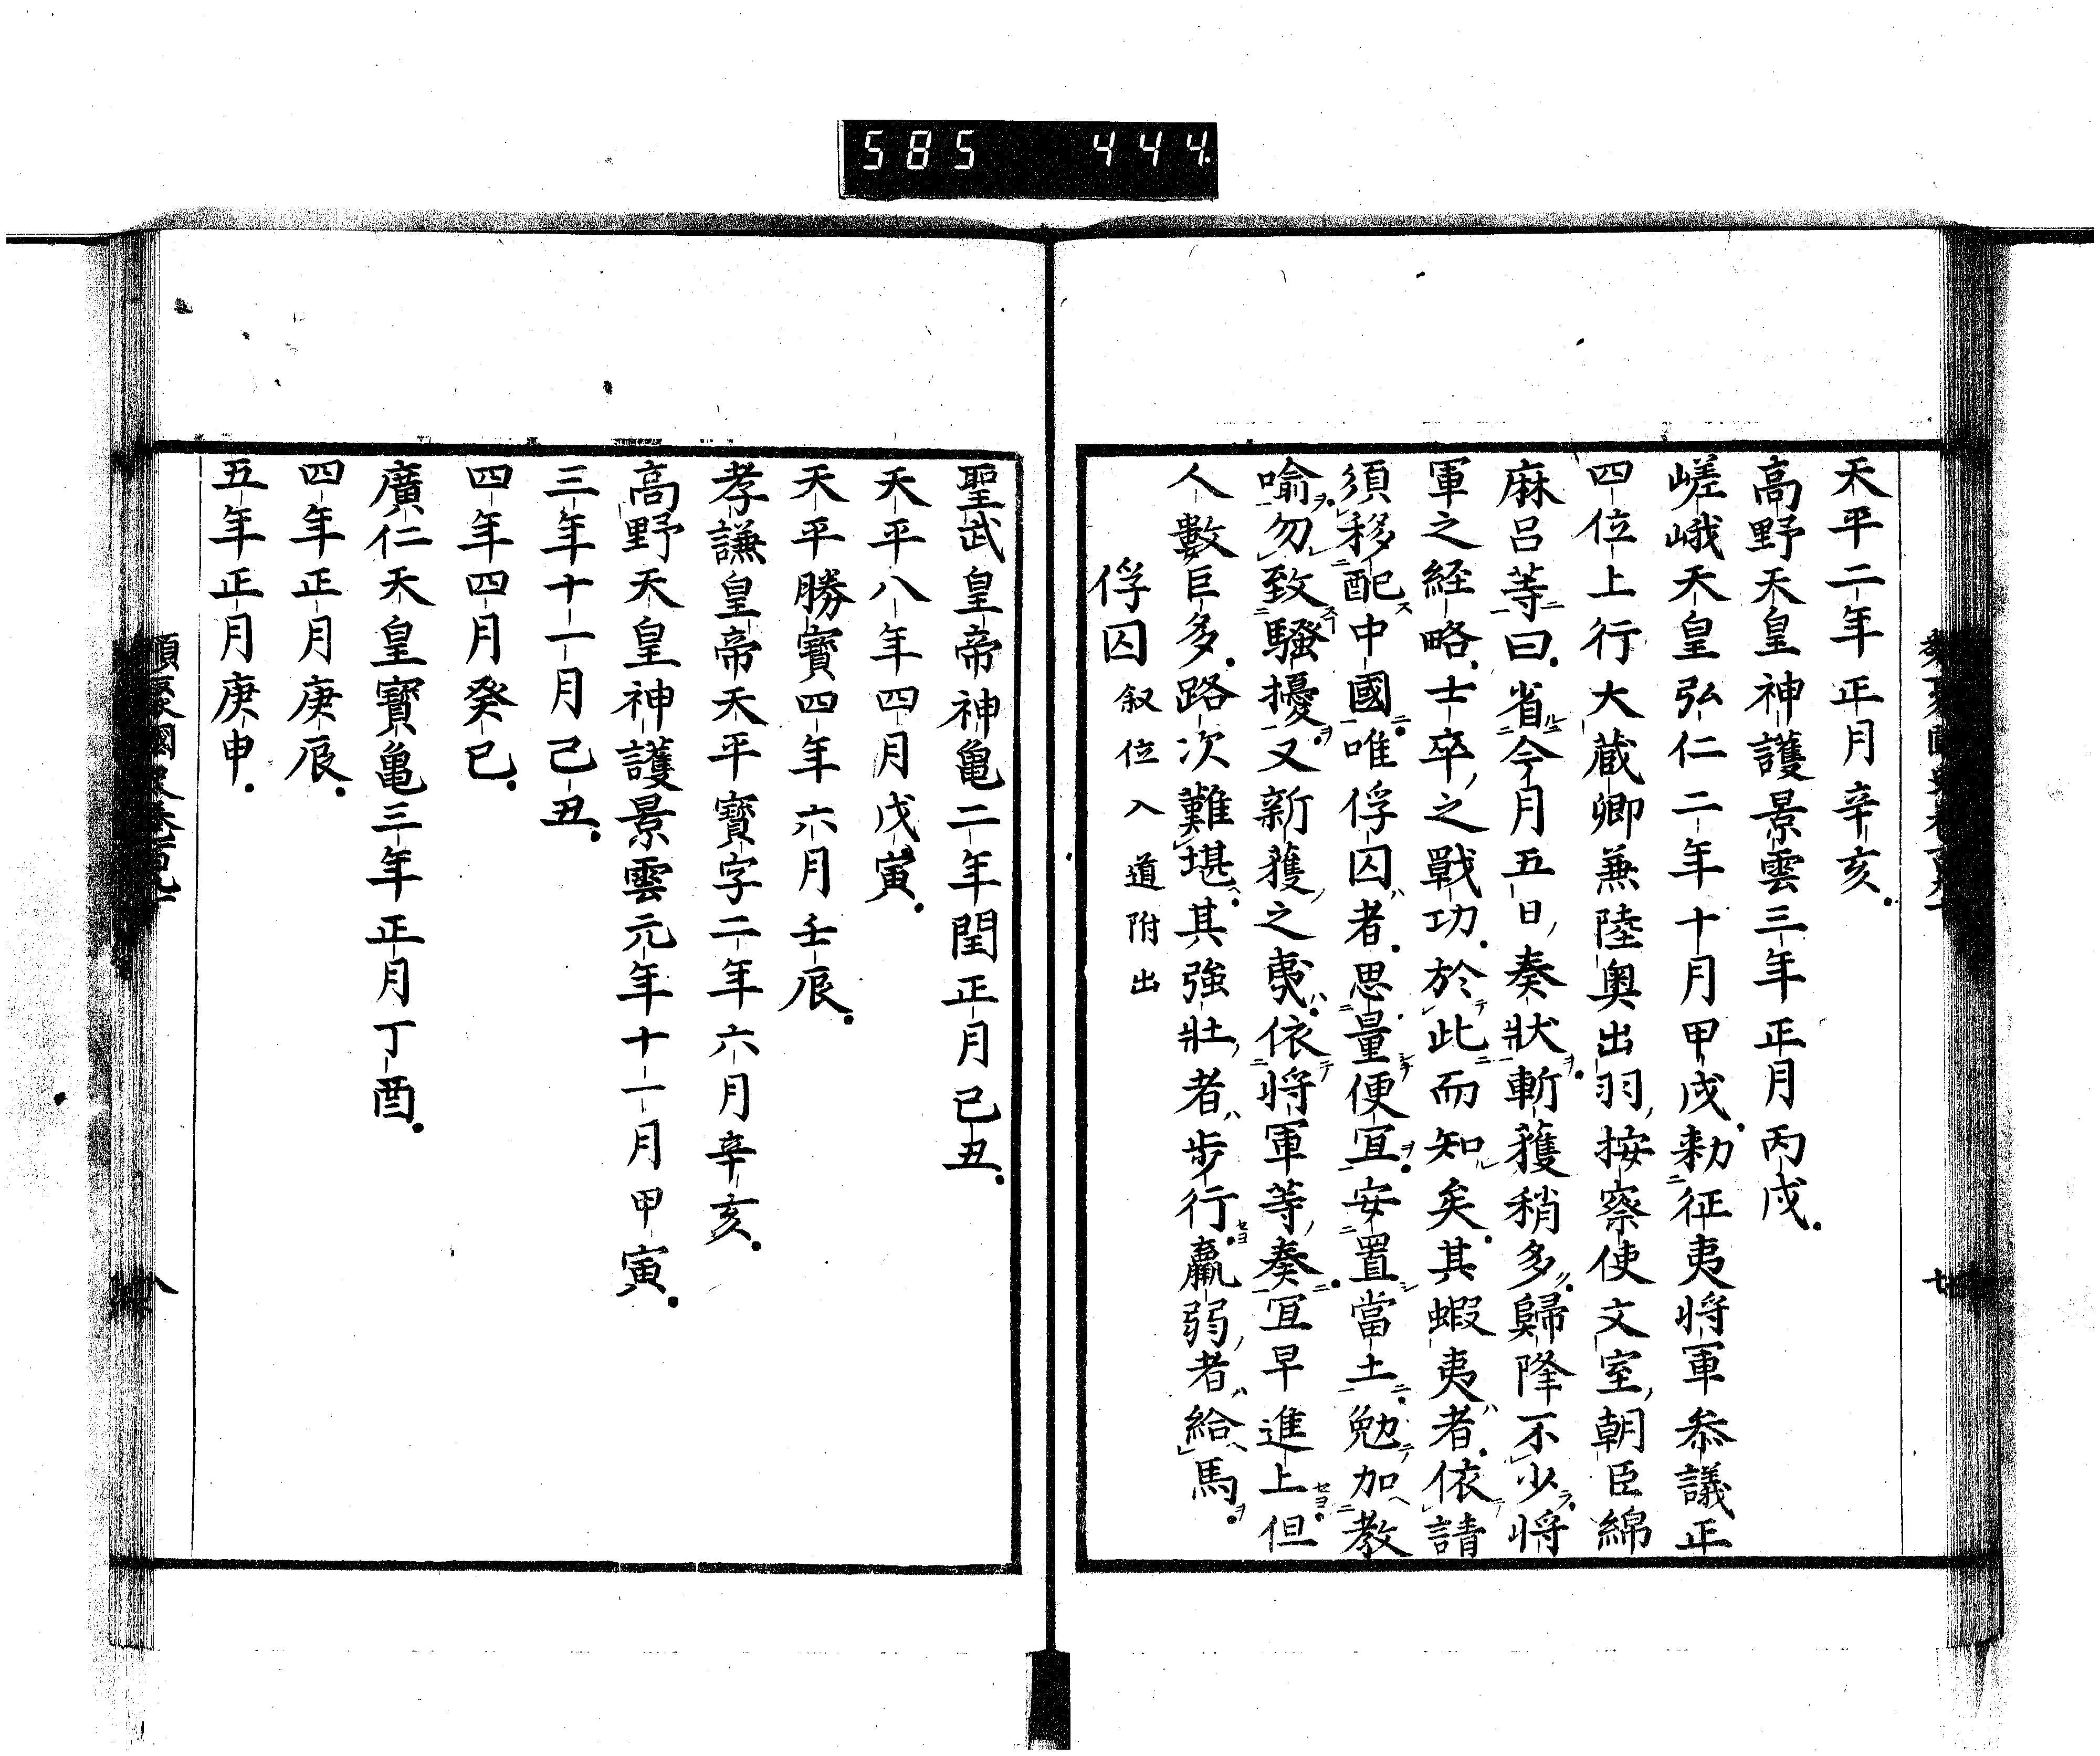 585 444
天平二年正月辛亥
高野天皇神護景雲三年正月丙戌
嵯峨天皇弘仁二年十月甲戌勅征夷将軍参議正
四位上行大蔵卿兼陸奧出羽按察使文室朝臣綿
麻呂等曰省今月五日奏狀斬獲稍多歸降不少将
軍之経略士卒之戰功於此而知矣其蝦夷者依請
須移配中國唯俘囚者思量便宜安置當土勉加教
喻勿致騷擾又新獲之夷依将軍等奏宜早進上但
人數巨多路次難堪其強壯者步行羸弱者給馬
俘囚 叙位入道附出
聖武皇帝神亀二年閏正月己丑
天平八年四月戊寅
天平勝寳四年六月壬辰
孝謙皇帝天平寳字二年六月辛亥
高野天皇神護景雲元年十一月甲寅
三年十一月己丑
四年四月癸巳
廣仁天皇寳亀三年正月丁酉
四年正月庚辰
五年正月庚申